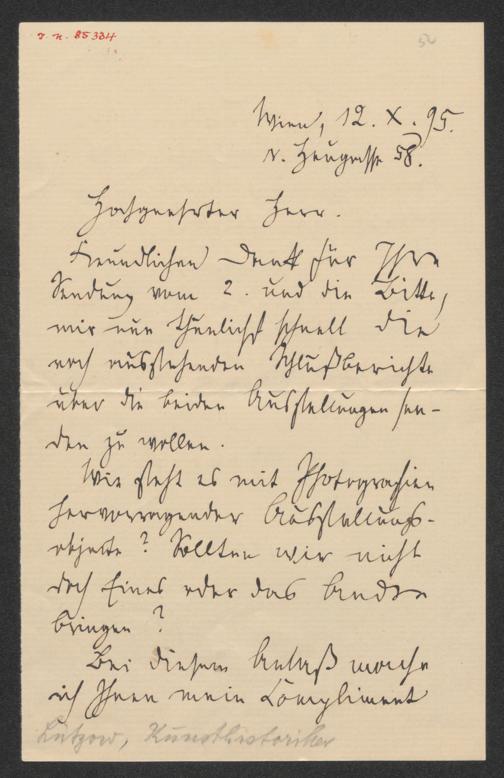 J. N. 85334
50
Wien, 12. X. 95.
V. Zeugasse 58.
Hochgeehrter Herr.
Freundlichen Dank für Ihre
Sendung vom 2. und die Bitte,
mir nun thunlichst schnell die
noch ausstehenden Schlußberichte
über die beiden Ausstellungen sen-
den zu wollen.
Wie steht es mit Photografien
hervorragender Ausstellungs-
objecte? Sollten wir nicht
doch Eines oder das Andre
bringen?
Bei diesem Anlaß mache
ich Ihnen mein Compliment
Lützow, Kunsthistoriker